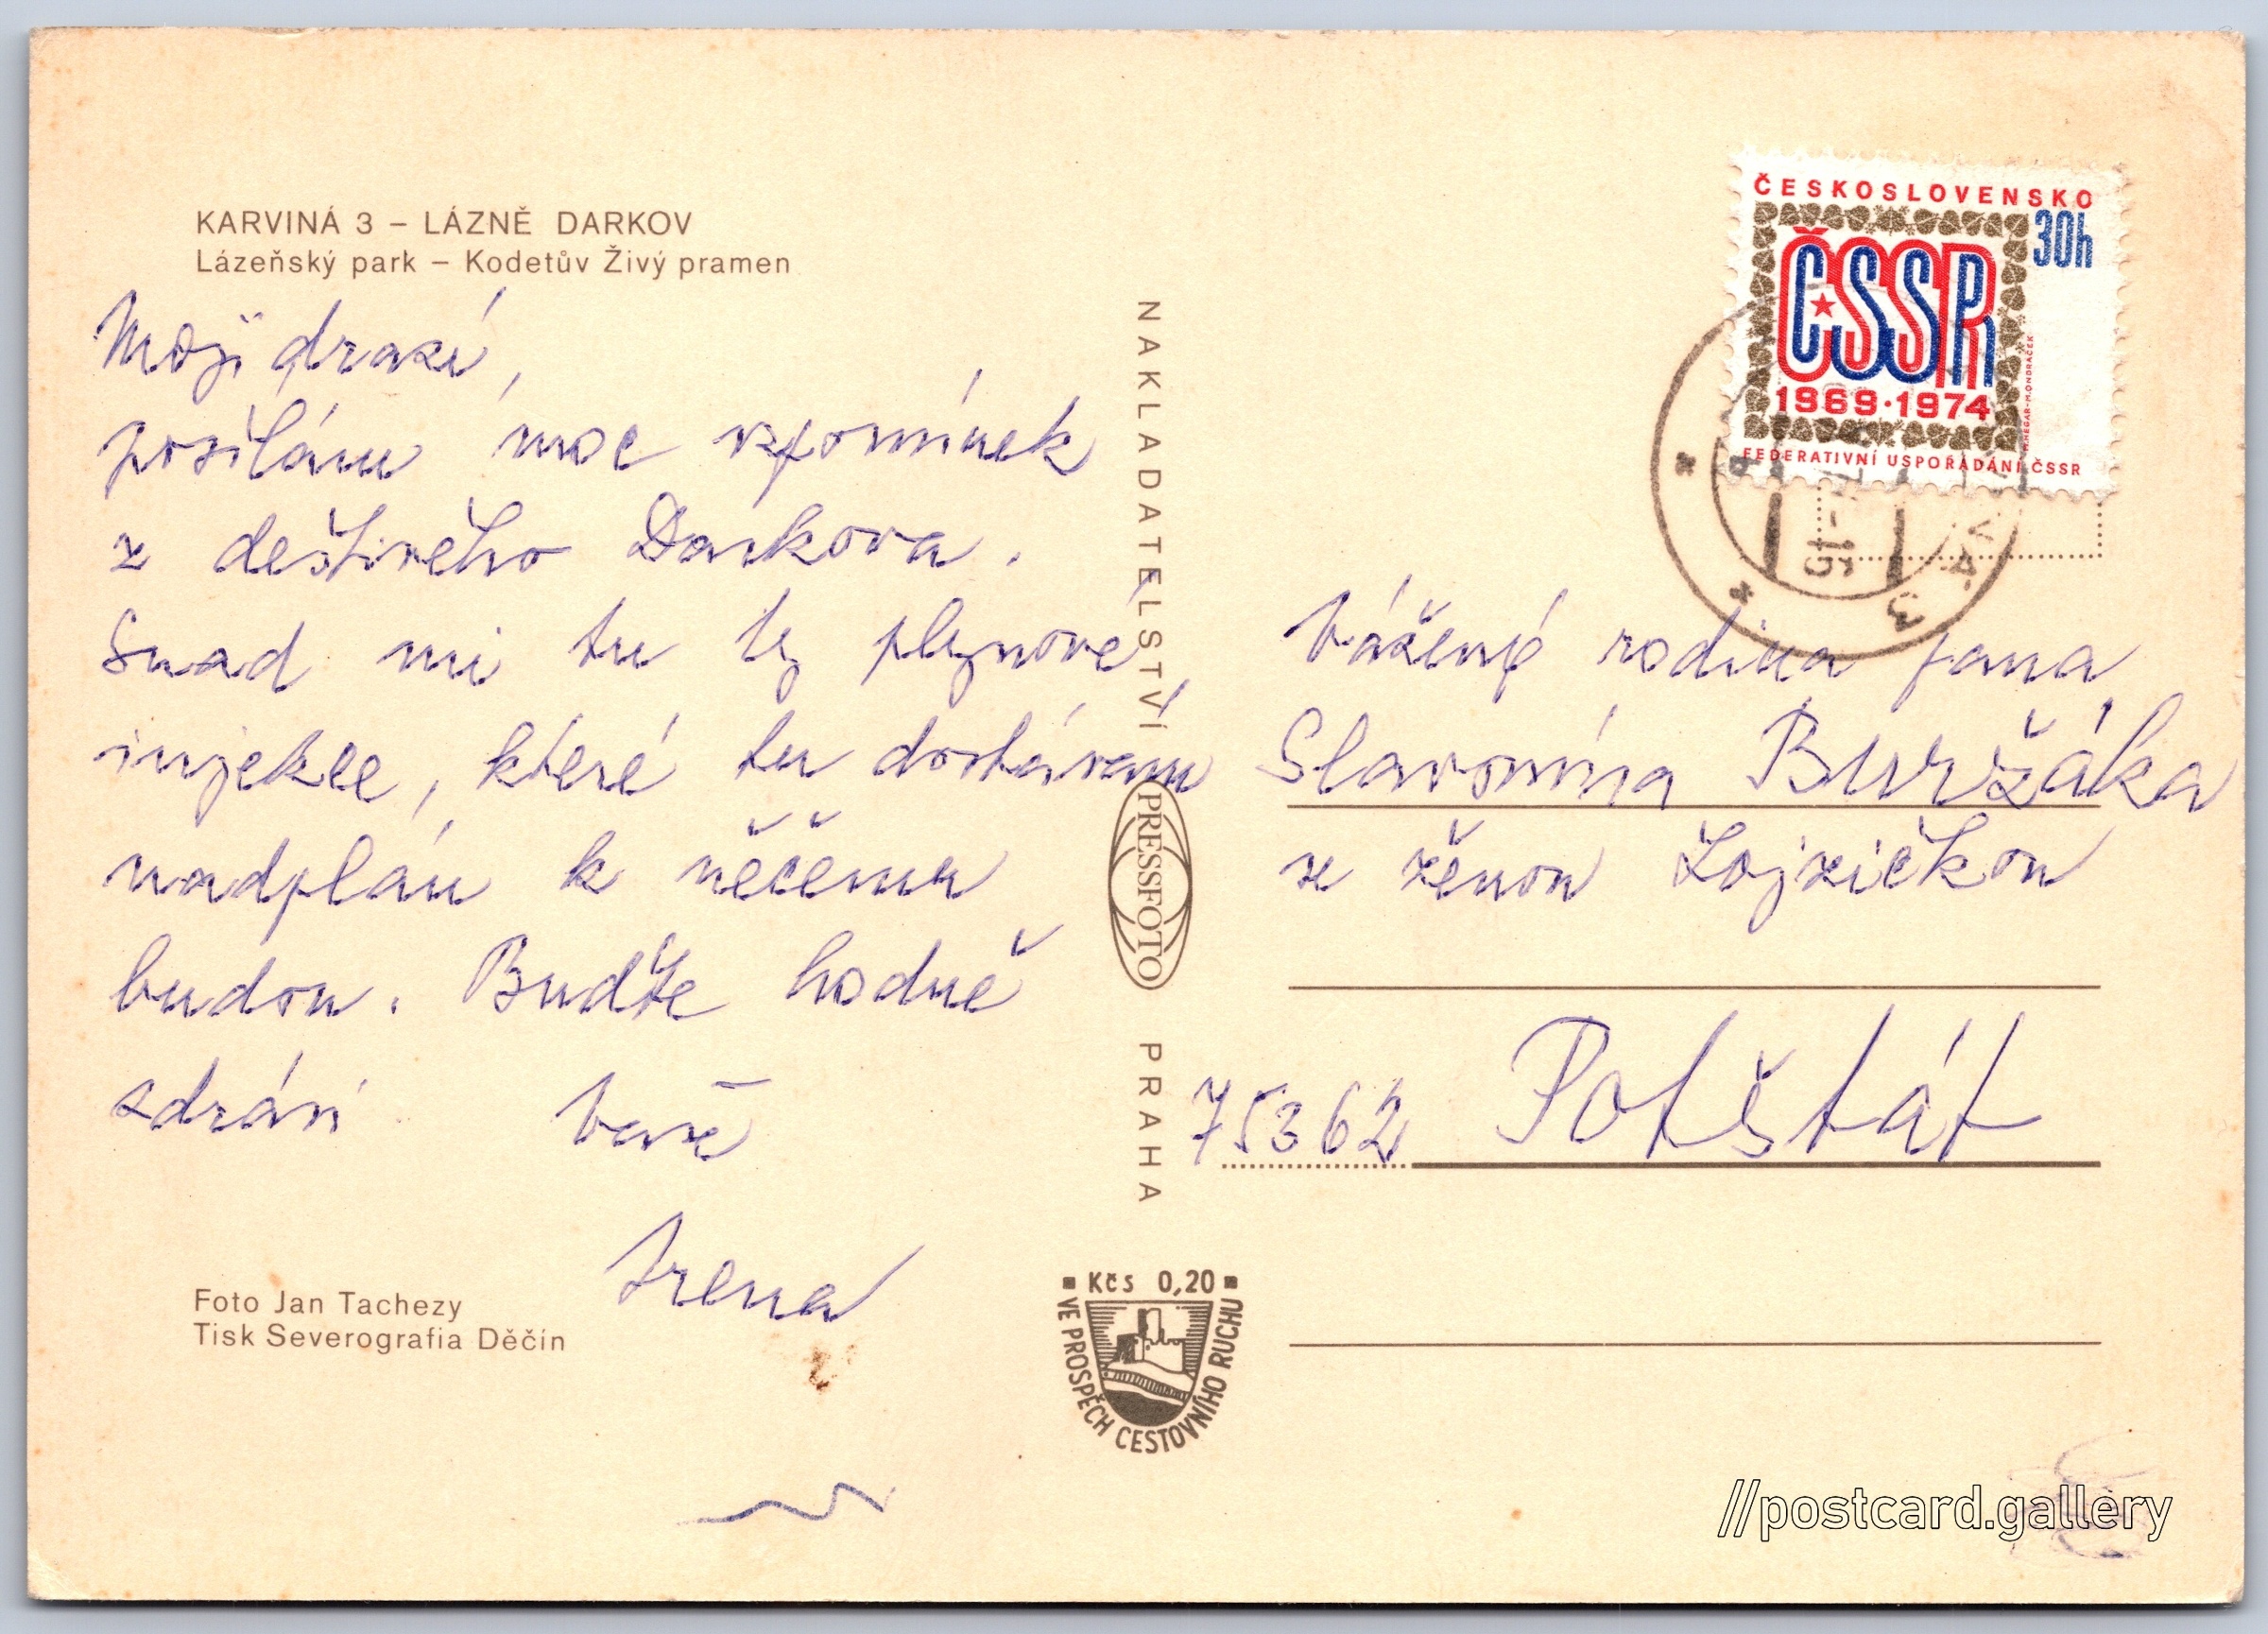 KARVINÁ 3 – LÁZNĚ DARKOV
Lázeňský park – Kodetův Živý pramen
Moji drazí,
posílám moc vzpomínek
z deštivého Darkova.
Snad mi tu ty plynové
injekce, které tu dostávám
nadplán k něčemu
budou. Buďte hodně
zdrávi Vaše
Irena
Foto Jan Tachezy
Tisk Severografia Děčín
NAKLADATELSTVÍ
PRESSFOTO
PRAHA
Kčs 0,20
VE PROSPĚCH CESTOVNÍHO RUCHU
ČESKOSLOVENSKO
30h
ČSSR
1969·1974
FEDERATIVNÍ USPOŘÁDÁNÍ ČSSR
Vážená rodina pana
Slavomíra Buržáka
se ženou Lojzičkou
75362 Potštát
//postcard.gallery